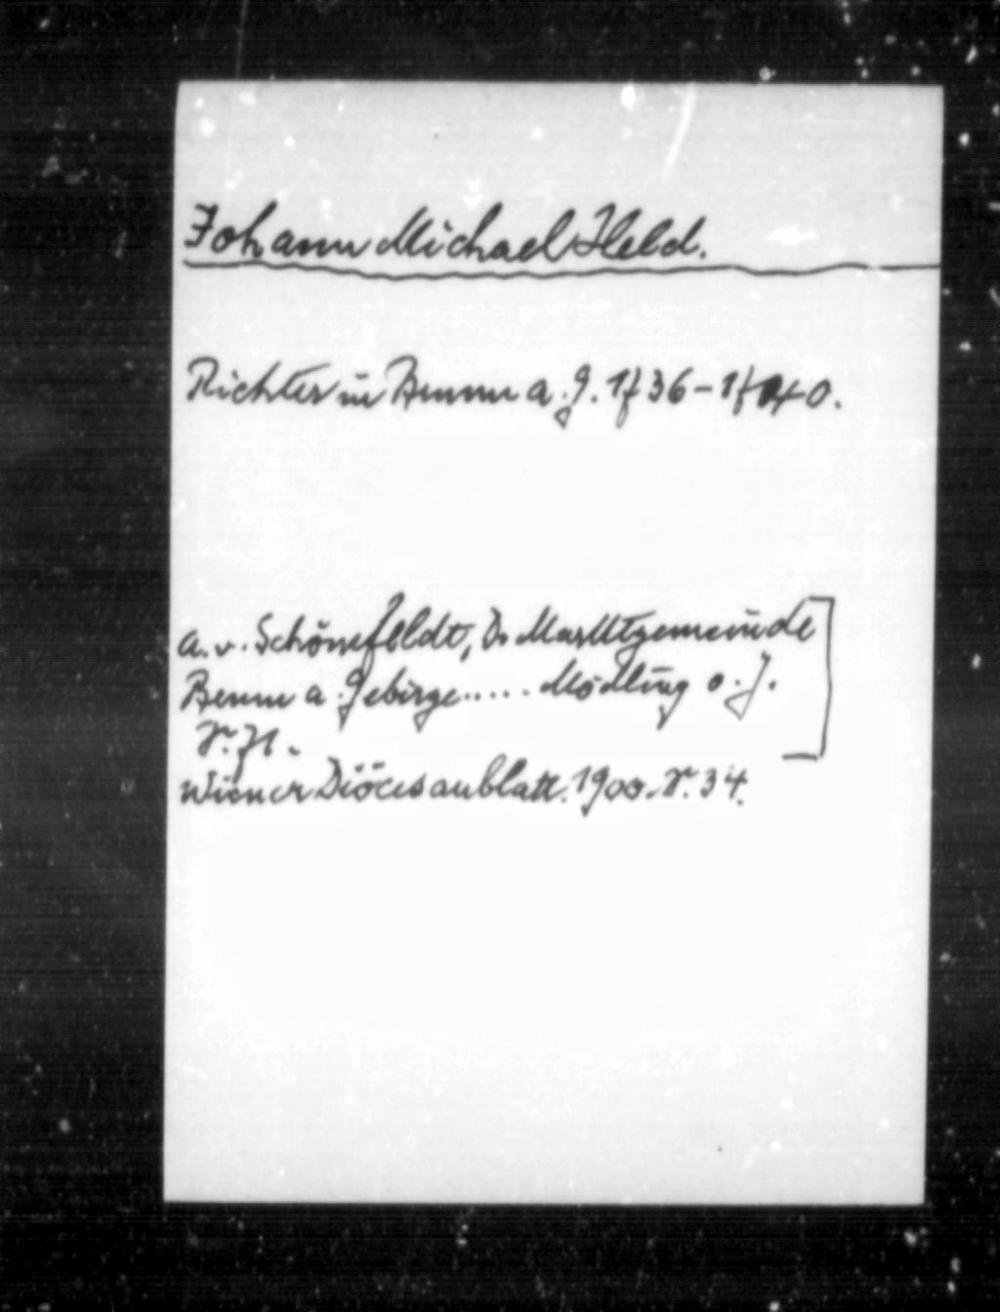 Johann Michael Held.
Richter in Brunn a. G. 1736-1740.
A. v. Schönefeldt, D. Marktgemeinde
Brunn a. Gebirge..... Mödling o. J.
S. 71.
Wiener Diöcesanblatt. 1900. S. 34.